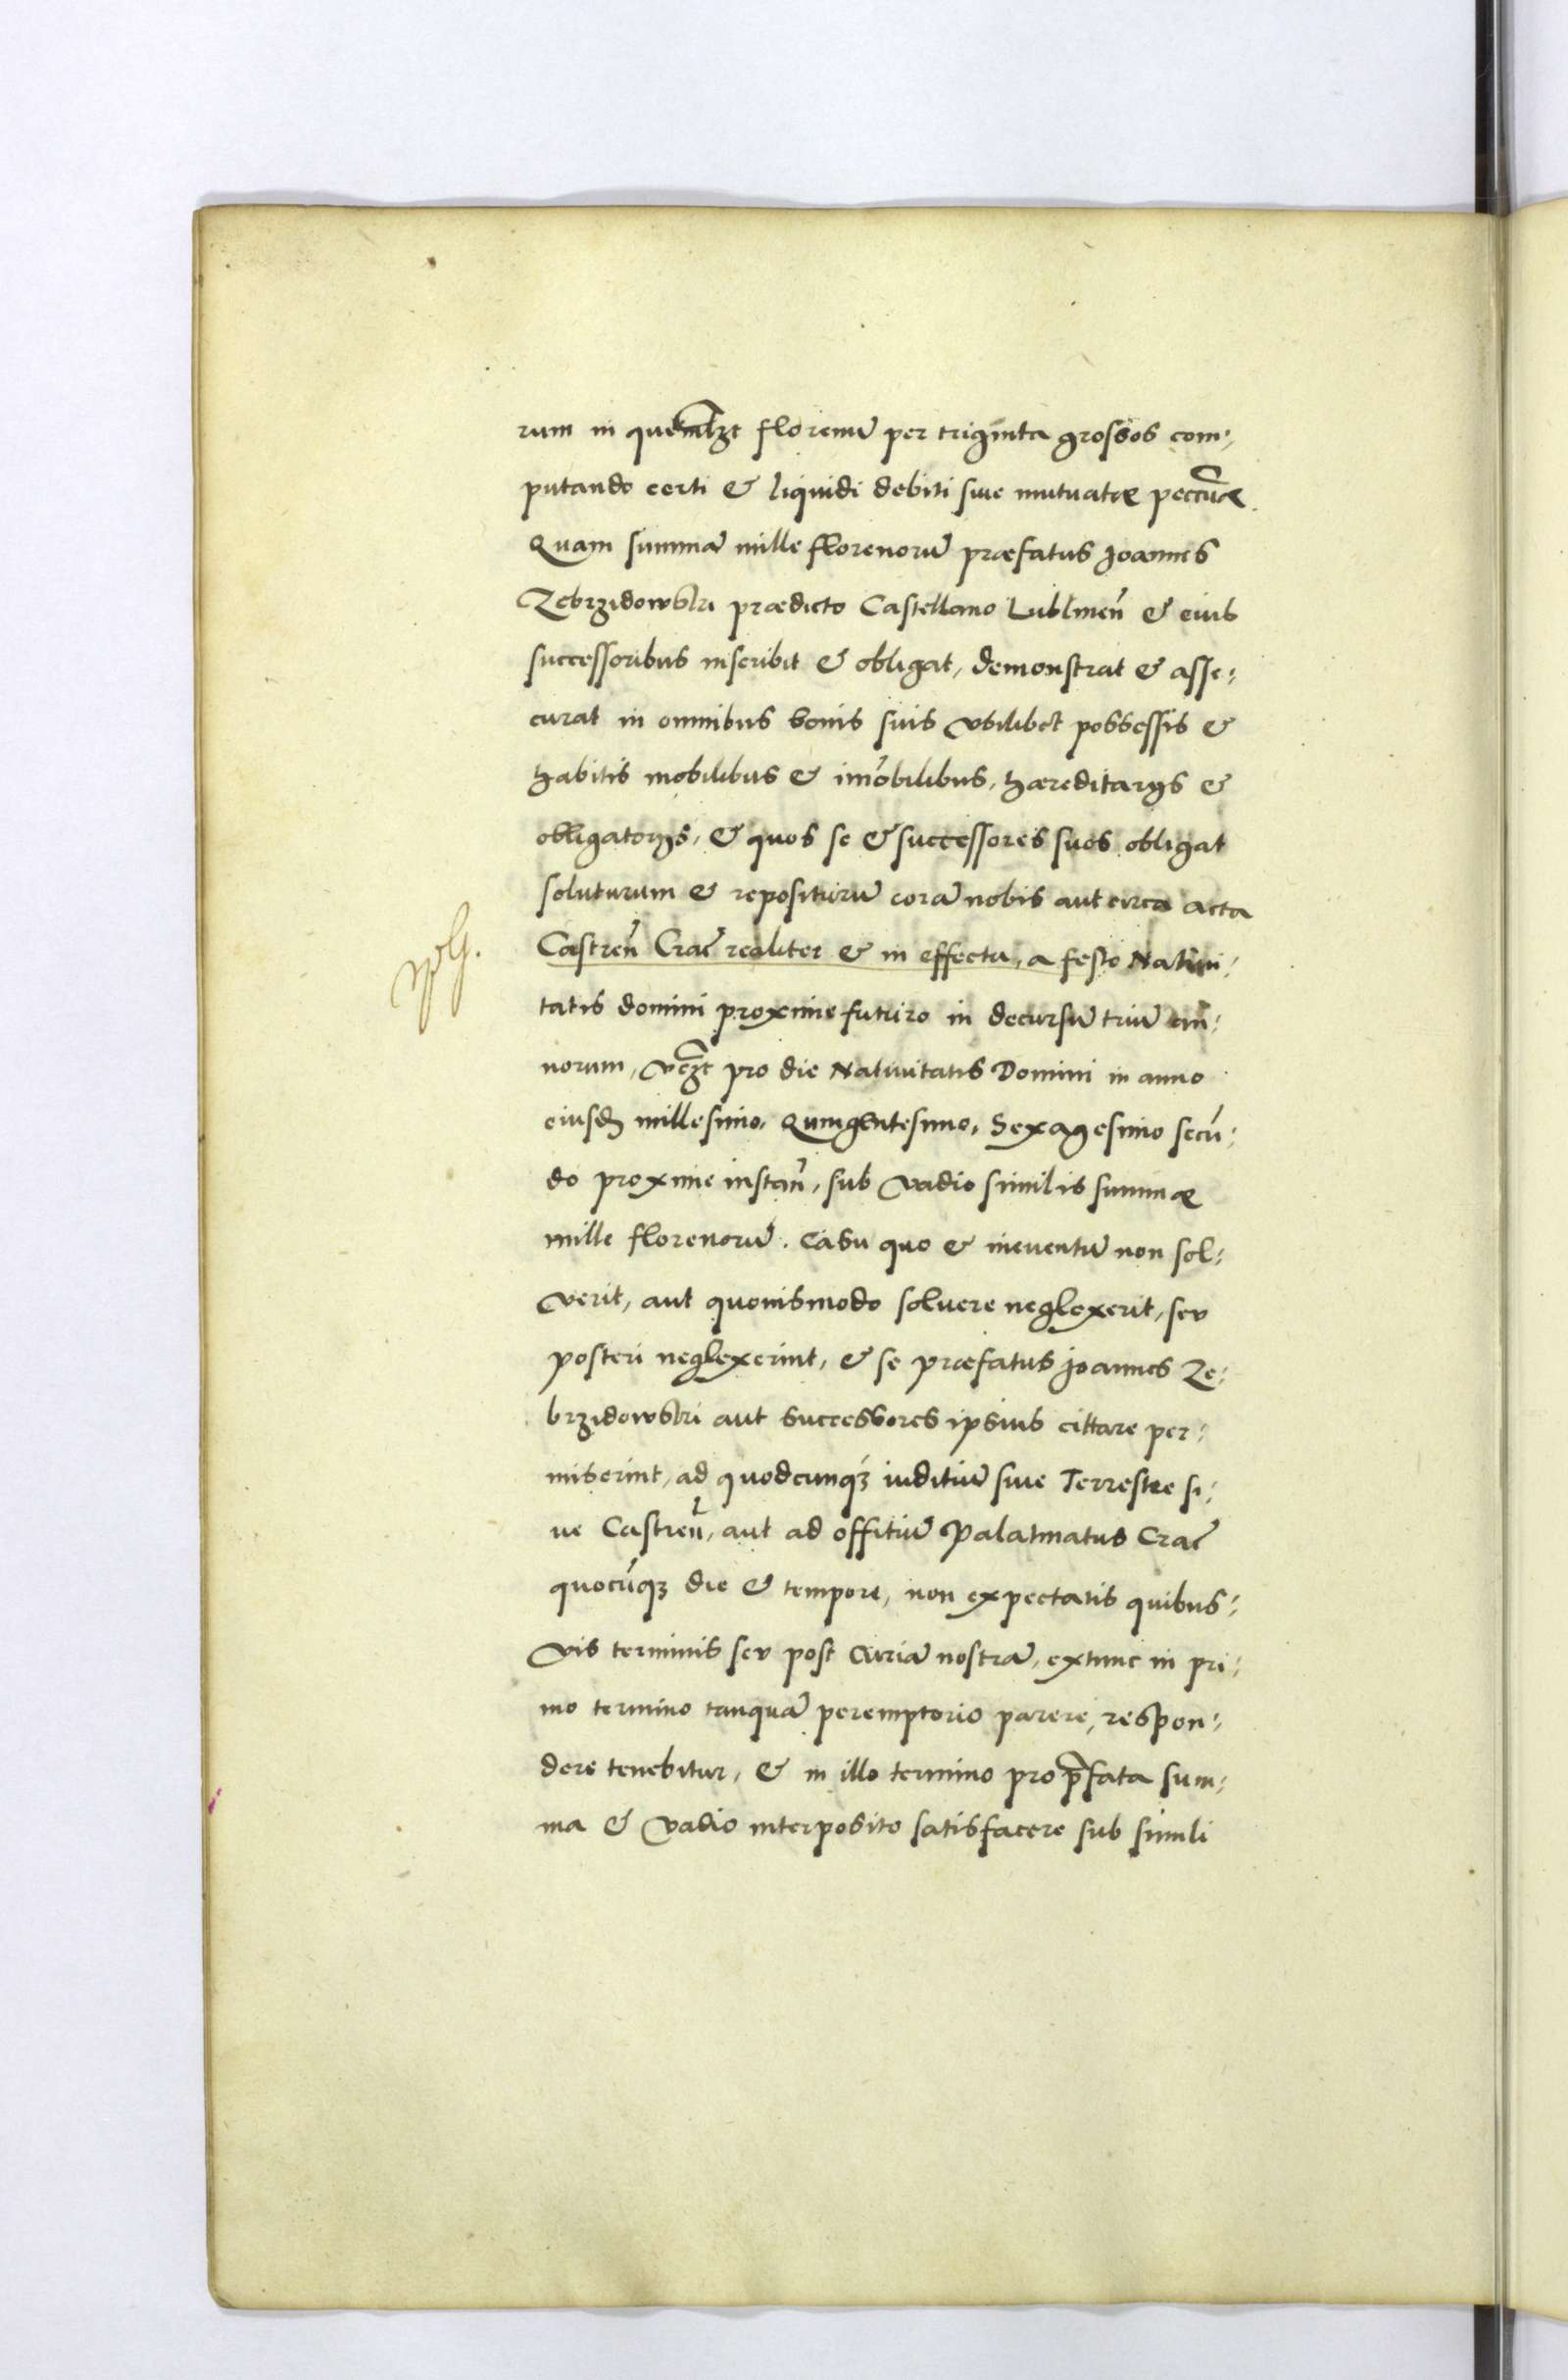 rum in quemlꝫt florenũ per triginta grossos com⸗
putando certi & liquidi debiti siue mutuatæ peccũæ
Quam summã mille florenorũ præfatus Joannes
Zebrzidowski prædicto Castellano Lublineñ & eius
successoribus inscribit & obligat, demonstrat & asse⸗
curat in omnibus bonis suis vbilibet possessis &
habitis mobilibus & im̃obilibus, hæreditarijs &
obligatorijs, & quos se & successores suos obligat
soluturum & repositurũ corã nobis aut circa acta
Castreñ Crac̃ realiter & in effectu, a festo Natiui⸗
tatis domini proxime futuro in decursu triũ an⸗
norum, vꝫt pro die Natiuitatis Domini in anno
eiusdẽ millesimo, Quingentesimo, Sexagesimo secũ⸗
do proxime instañ, sub vadio similis summæ
mille florenorũ. Casu quo & ineuentũ non sol⸗
verit, aut quouismodo soluere neglexerit, seu
posteri neglexerint, & se præfatus Joannes Ze⸗
brzidowski aut successores ipsius cittare per⸗
miserint, ad quodcunqꝫ iuditiũ siue Terrestre si⸗
ue Castreñ, aut ad offitiũ Palatinatus Crac̃
quocũqꝫ die & tempore, non expectatis quibus⸗
vis terminis seu post Curiã nostrã, extunc in pri⸗
mo termino tanquã peremptorio parere, respon⸗
dere tenebitur, & in illo termino pro p̃fata sum⸗
ma & vadio interposito satisfacere sub simili